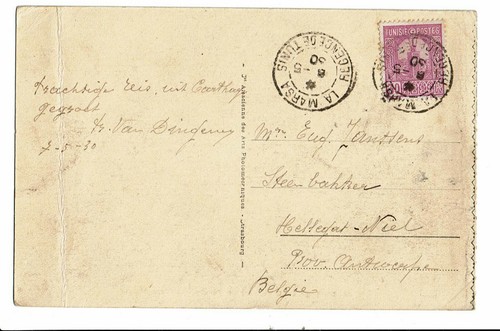 TUNISIE POSTES
REGENCE DE TUNIS
LA MARSA
5 - 5
30
Prachtige reis, uit Carthage
gegroet
Van Dingenen
7-5-30
Mr Eug. Janssens
Steenbakker
Hellegat-Niel
Prov. Antwerpen
Belgie
Sté Alsacienne des Arts Photomécaniques - Strasbourg